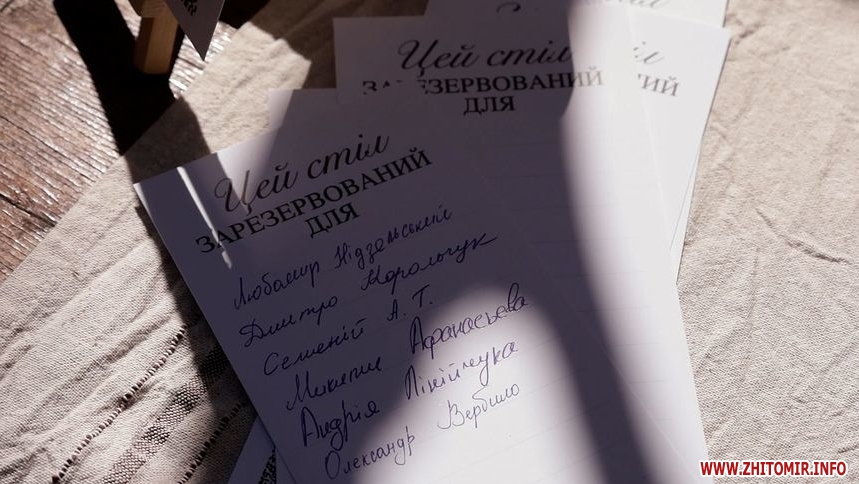 Цей стіл
ЗАРЕЗЕРВОВАНИЙ
ДЛЯ
Цей стіл
ЗАРЕЗЕРВОВАНИЙ
ДЛЯ
Любомир Нідзельський
Дмитро Корольчук
Семеній А. Т.
Микити Афанасьєва
Андрія
Олександр Вербило
WWW.ZHITOMIR.INFO